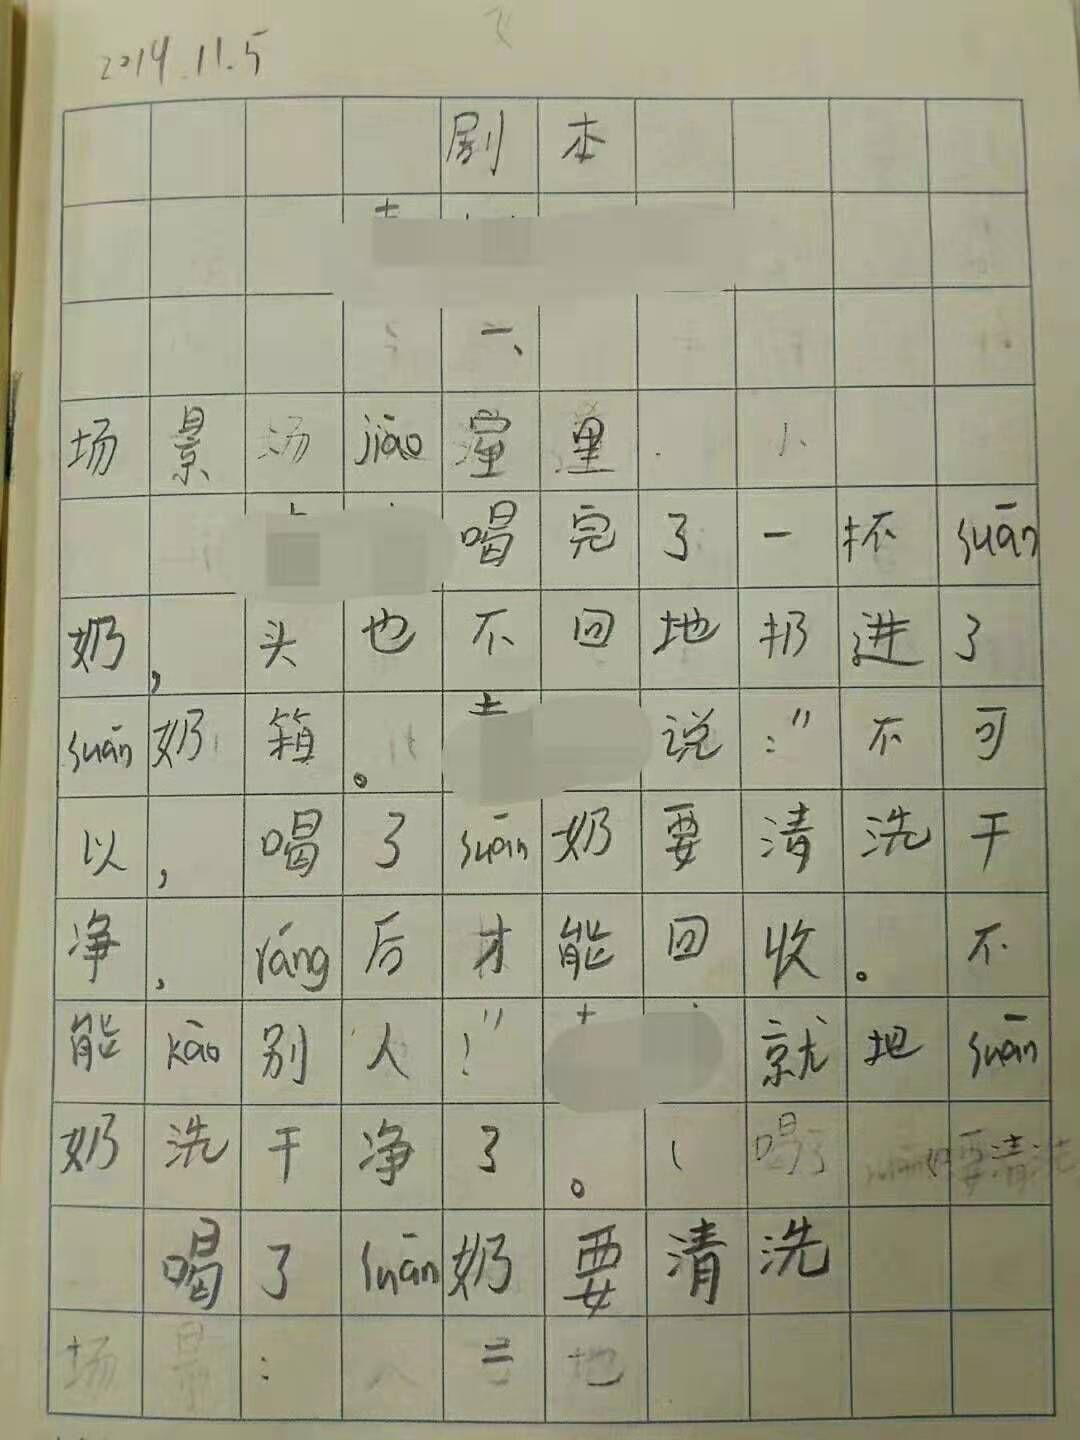 2014.11.5
剧本
一、
场景汤jiāo
喝完了一杯suān
奶,头也不回地扔进了
suān奶箱。说:"不可
以,喝了suān奶要清洗干
净,ráng后才能回收。不
能kào别人!"就地suān
奶洗干净了。
喝了 suān奶要清洗
喝了suān奶要清洗
场景:二地